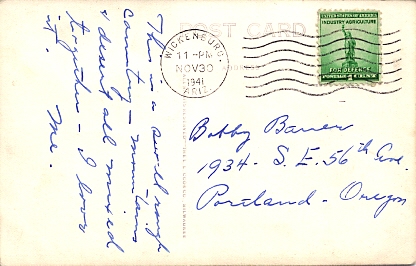 POST CARD
WICKENBURG,
11-PM
NOV 30
1941
ARIZ.
UNITED STATES OF AMERICA
INDUSTRY AGRICULTURE
FOR DEFENSE
POSTAGE 1 CENT
This is a swell rough
country - mountains
& desert all mixed
together - I love
it. Me.
Bobby Bauer
1934 - S. E. 56th Ave.
Portland - Oregon